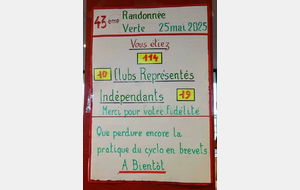 43eme Randonnée
Verte 25 mai 2025
Vous étiez
114
10 Clubs Représentés
Indépendants 19
Merci pour votre fidelité
Que perdure encore la
pratique du cyclo en brevets
A Bientôt